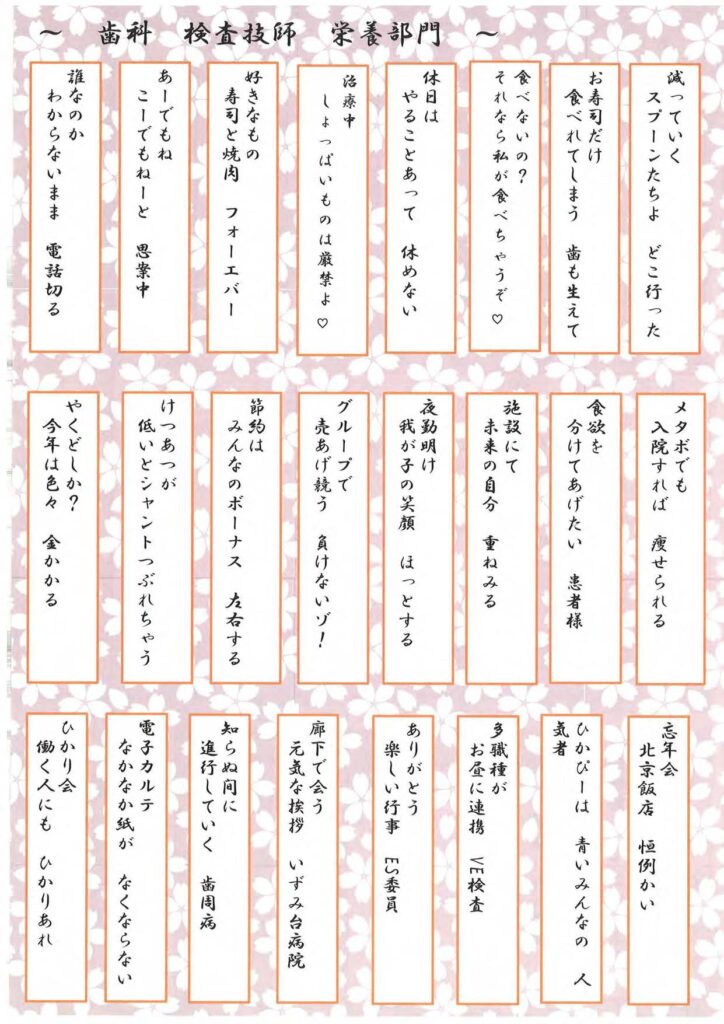 ～　歯科　検査技師　栄養部門　～
減っていく
スプーンたちよ　どこ行った
お寿司だけ
食べれてしまう　歯も生えて
食べないの？
それなら私が食べちゃうぞ♡
休日は
やることあって　休めない
治療中
しょっぱいものは厳禁よ♡
好きなもの
寿司と焼肉　フォーエバー
あーでもね
こーでもねーと　思案中
誰なのか
わからないまま　電話切る
メタボでも
入院すれば　痩せられる
食欲を
分けてあげたい　患者様
施設にて
未来の自分　重ねみる
夜勤明け
我が子の笑顔　ほっとする
グループで
売あげ競う　負けないゾ！
節約は
みんなのボーナス　左右する
けつあつが
低いとシャントつぶれちゃう
やくどしか？
今年は色々　金かかる
忘年会
北京飯店　恒例かい
ひかぴーは　青いみんなの　人
気者
多職種が
お昼に連携　VE検査
ありがとう
楽しい行事　ES委員
廊下で会う
元気な挨拶　いずみ台病院
知らぬ間に
進行していく　歯周病
電子カルテ
なかなか紙が　なくならない
ひかり会
働く人にも　ひかりあれ